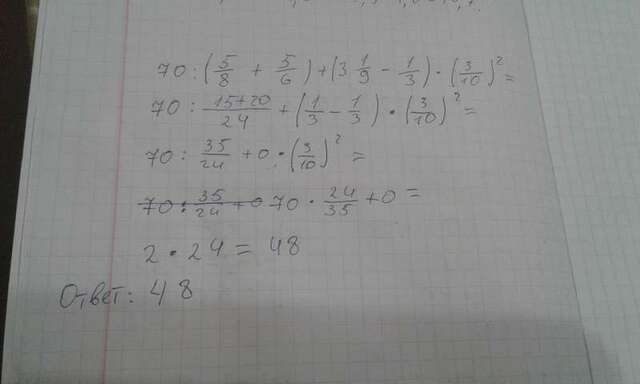 70 : (5/8 + 5/6) + (3 1/9 - 1/3) · (3/10)² =
70 : (15+20)/24 + (1/3 - 1/3) · (3/10)² =
70 : 35/24 + 0 · (3/10)² =
70 : 35/24 + 0 70 · 24/35 + 0 =
2 · 24 = 48
Ответ: 48